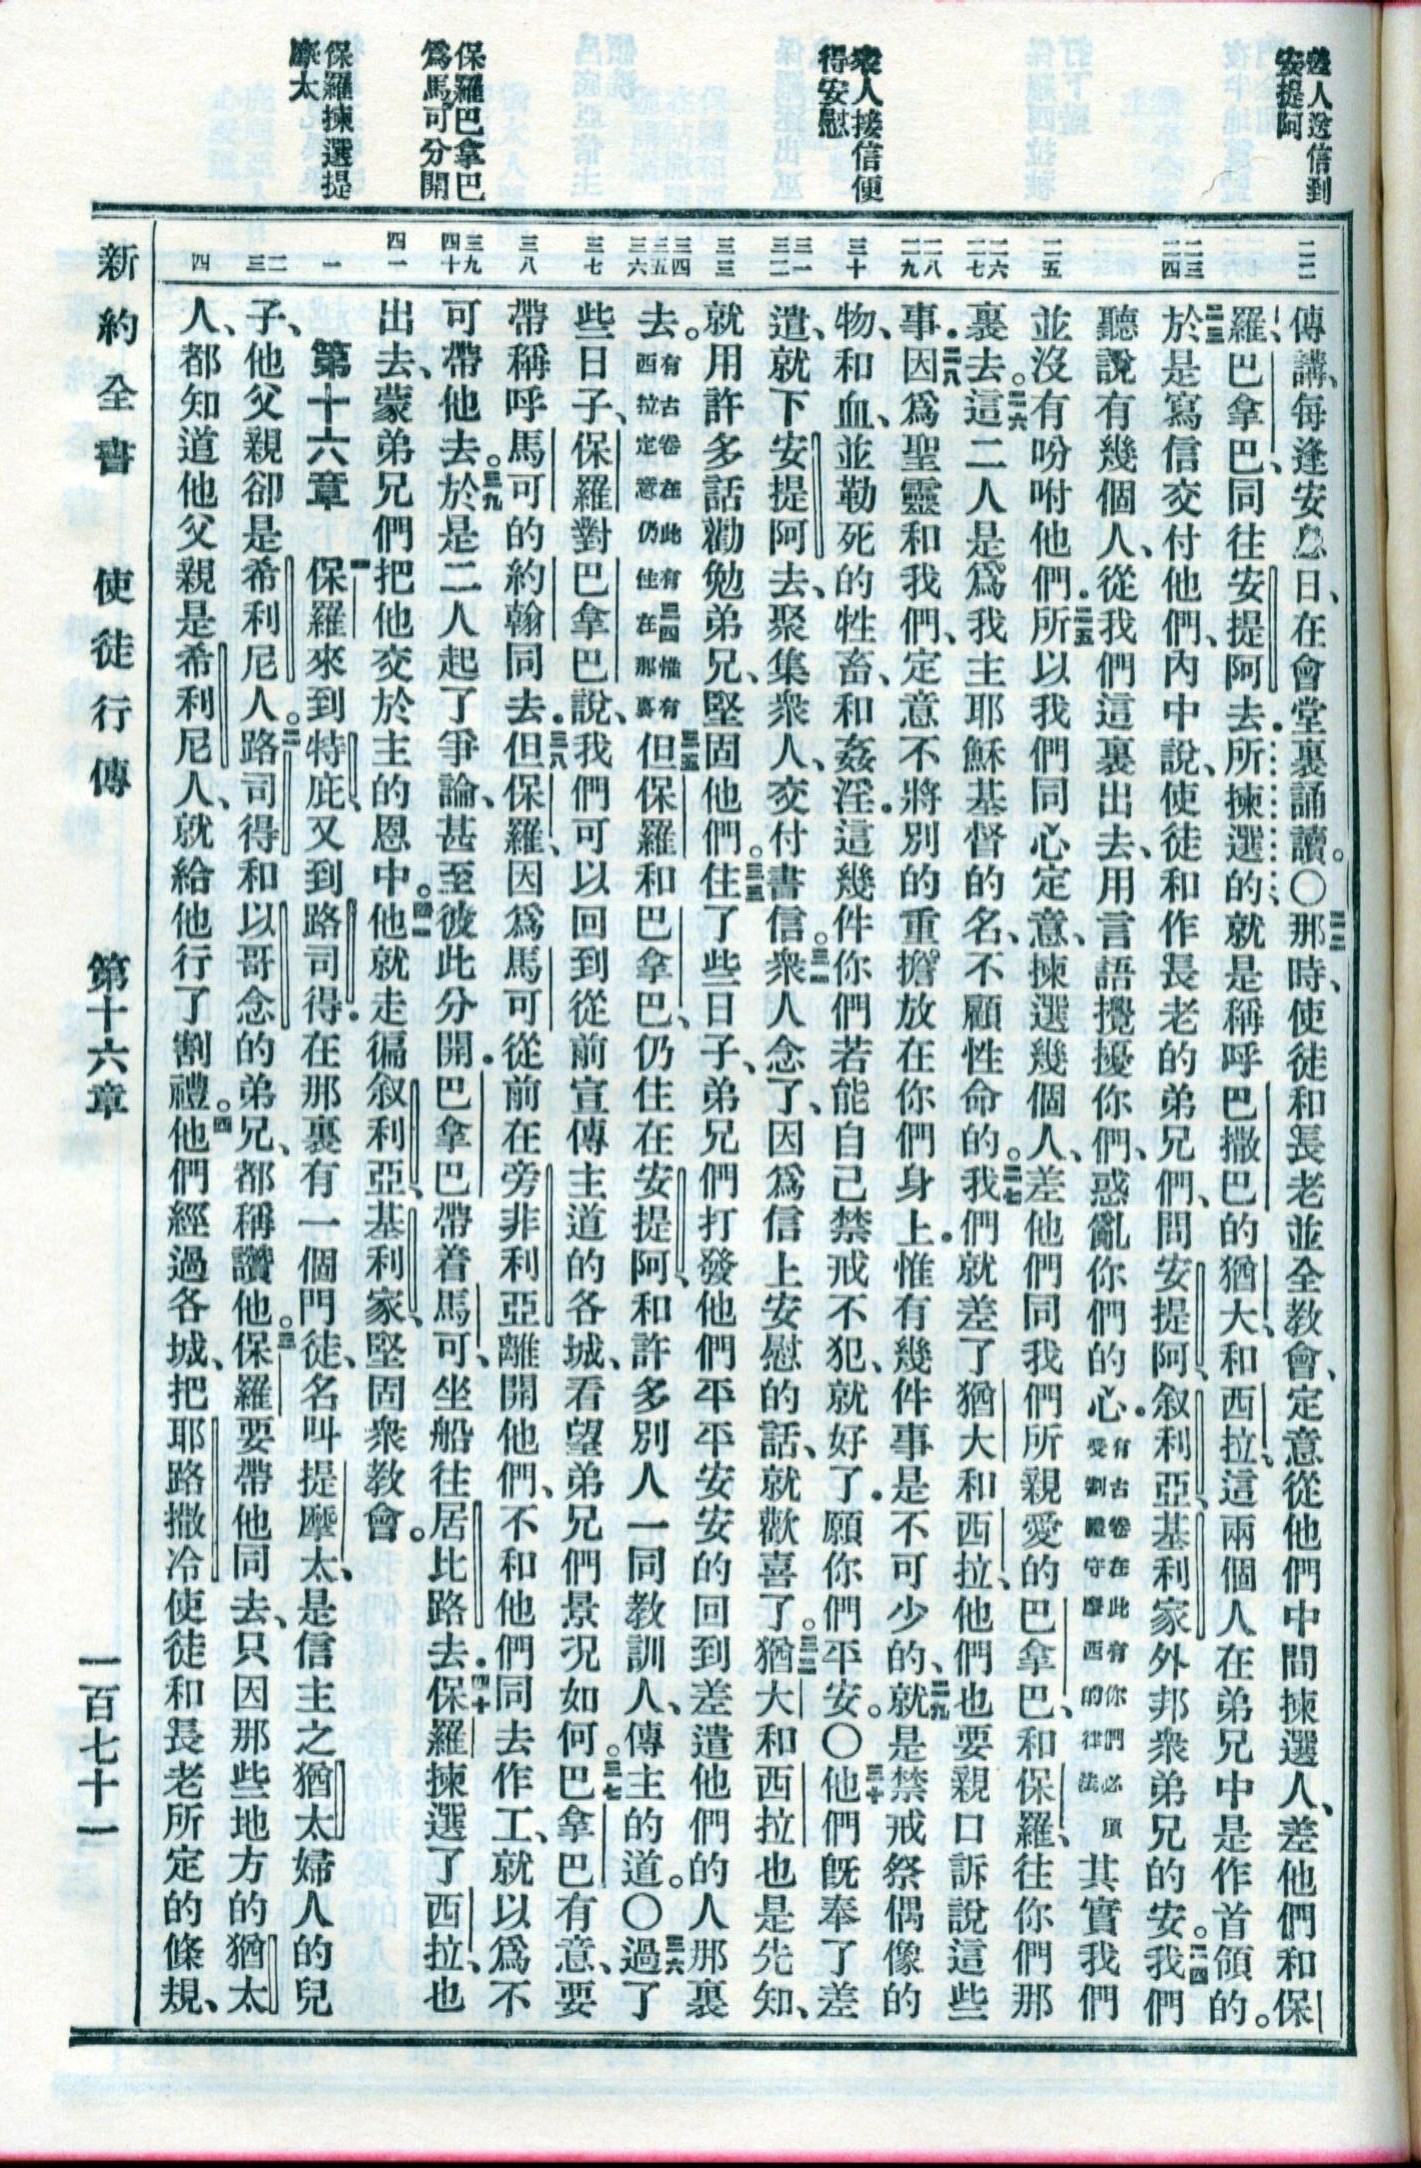 遣人送信到
安提阿
衆人接信便
得安慰
保羅巴拿巴
爲馬可分開
保羅揀選提
摩太
二二
二三
二四
二五
二六
二七
二八
二九
三十
三一
三二
三三
三四
三五
三六
三七
三八
三九
四十
四一
一
二
三
四
傳講、每逢安息日、在會堂裏誦讀。〇二二那時、使徒和長老並全教會、定意從他們中間揀選人、差他們和保
羅、巴拿巴、同往安提阿去.所揀選的、就是稱呼巴撒巴的猶大、和西拉、這兩個人在弟兄中是作首領的。
二三於是寫信交付他們、內中說、使徒和作長老的弟兄們、問安提阿、叙利亞、基利家外邦衆弟兄的安。二四我們
聽說有幾個人、從我們這裏出去、用言語攪擾你們、惑亂你們的心.有古卷在此有你們必須受割禮守摩西的律法其實我們
並沒有吩咐他們.二五所以我們同心定意、揀選幾個人、差他們同我們所親愛的巴拿巴、和保羅、往你們那
裏去。二六這二人是爲我主耶穌基督的名、不顧性命的。二七我們就差了猶大和西拉、他們也要親口訴說這些
事.二八因爲聖靈和我們、定意不將別的重擔放在你們身上.惟有幾件事是不可少的、二九就是禁戒祭偶像的
物、和血、並勒死的牲畜、和姦淫.這幾件你們若能自己禁戒不犯、就好了.願你們平安。〇三十他們旣奉了差
遣、就下安提阿去、聚集衆人、交付書信。三一衆人念了、因爲信上安慰的話、就歡喜了。三二猶大和西拉也是先知、
就用許多話勸勉弟兄、堅固他們。三三住了些日子、弟兄們打發他們平平安安的回到差遣他們的人那裏
去。有古卷在此有三四惟有西拉定意仍住在那裏三五但保羅和巴拿巴、仍住在安提阿、和許多別人一同教訓人、傳主的道。〇三六過了
些日子、保羅對巴拿巴說、我們可以回到從前宣傳主道的各城、看望弟兄們景况如何。三七巴拿巴有意、要
帶稱呼馬可的約翰同去.三八但保羅、因爲馬可從前在旁非利亞離開他們、不和他們同去作工、就以爲不
可帶他去。三九於是二人起了爭論、甚至彼此分開.巴拿巴帶着馬可、坐船往居比路去.四十保羅揀選了西拉、也
出去、蒙弟兄們把他交於主的恩中。四一他就走徧叙利亞、基利家、堅固衆教會。
第十六章 一保羅來到特庇、又到路司得.在那裏有一個門徒、名叫提摩太、是信主之猶太婦人的兒
子、他父親卻是希利尼人。二路司得和以哥念的弟兄、都稱讚他。三保羅要帶他同去、只因那些地方的猶太
人、都知道他父親是希利尼人、就給他行了割禮。四他們經過各城、把耶路撒冷使徒和長老所定的條規、
新約全書 使徒行傳 第十六章 一百七十一